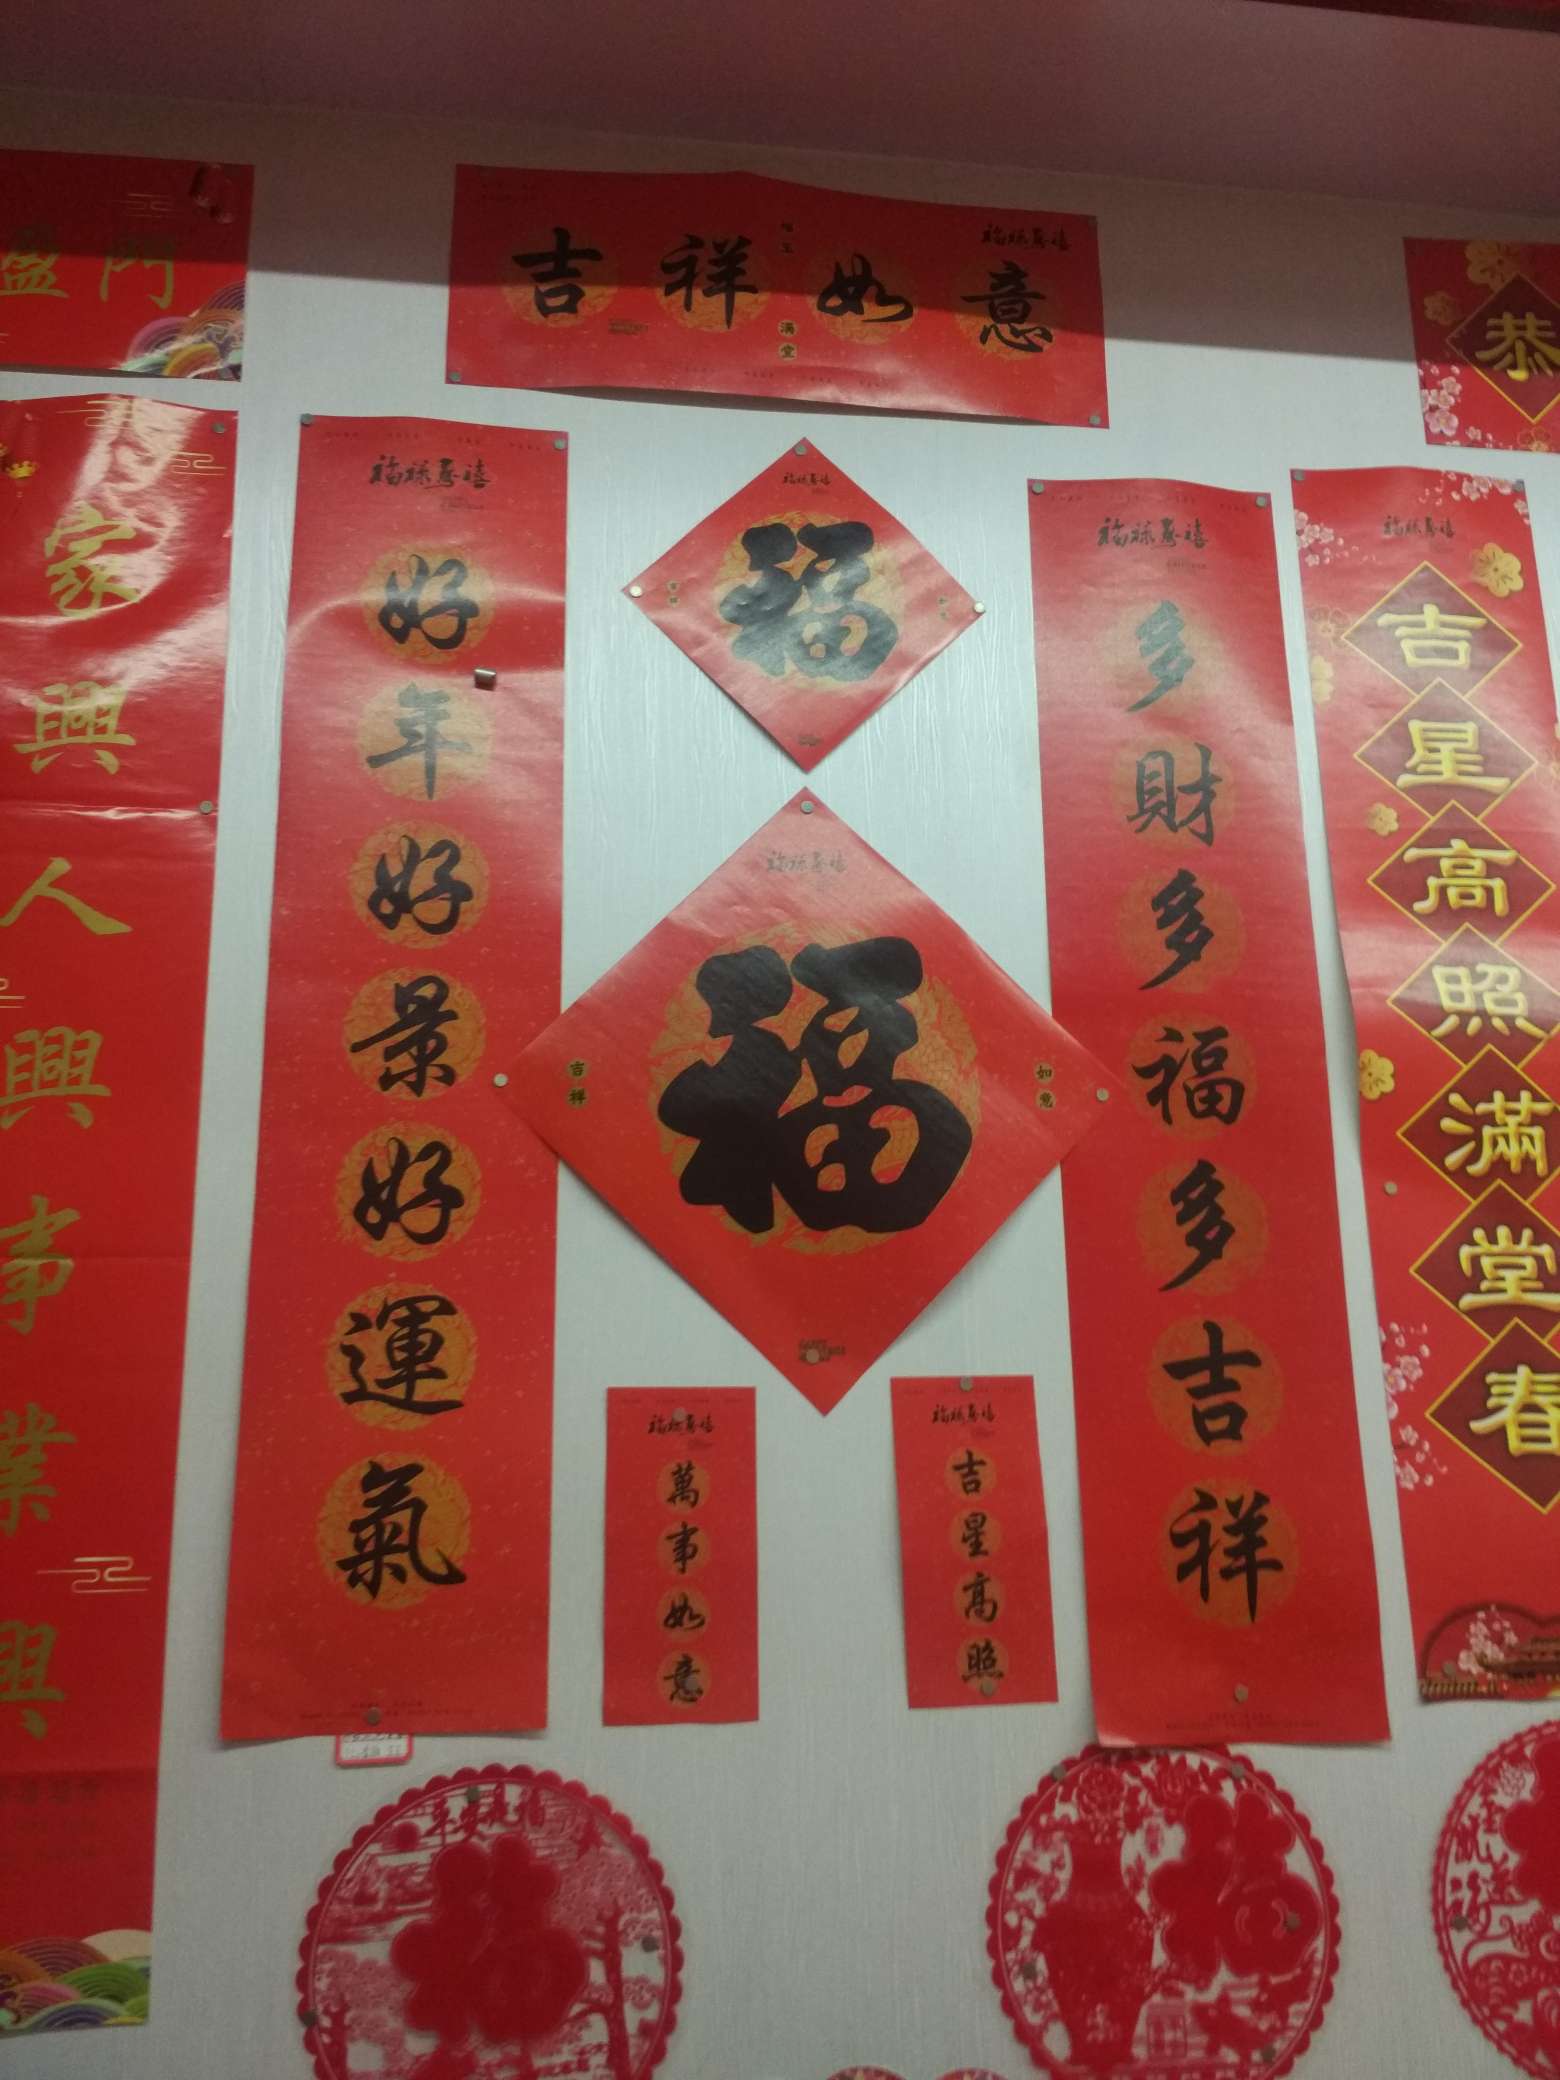 盛門
吉祥如意
福祿壽禧
满堂
恭
家興人興事業興
福祿壽禧
好年好景好運氣
福祿壽禧
福
福祿壽禧
福
吉祥
如意
福祿壽禧
多財多福多吉祥
福祿壽禧
吉星高照滿堂春
福祿壽禧
萬事如意
福祿壽禧
吉星高照
福
福